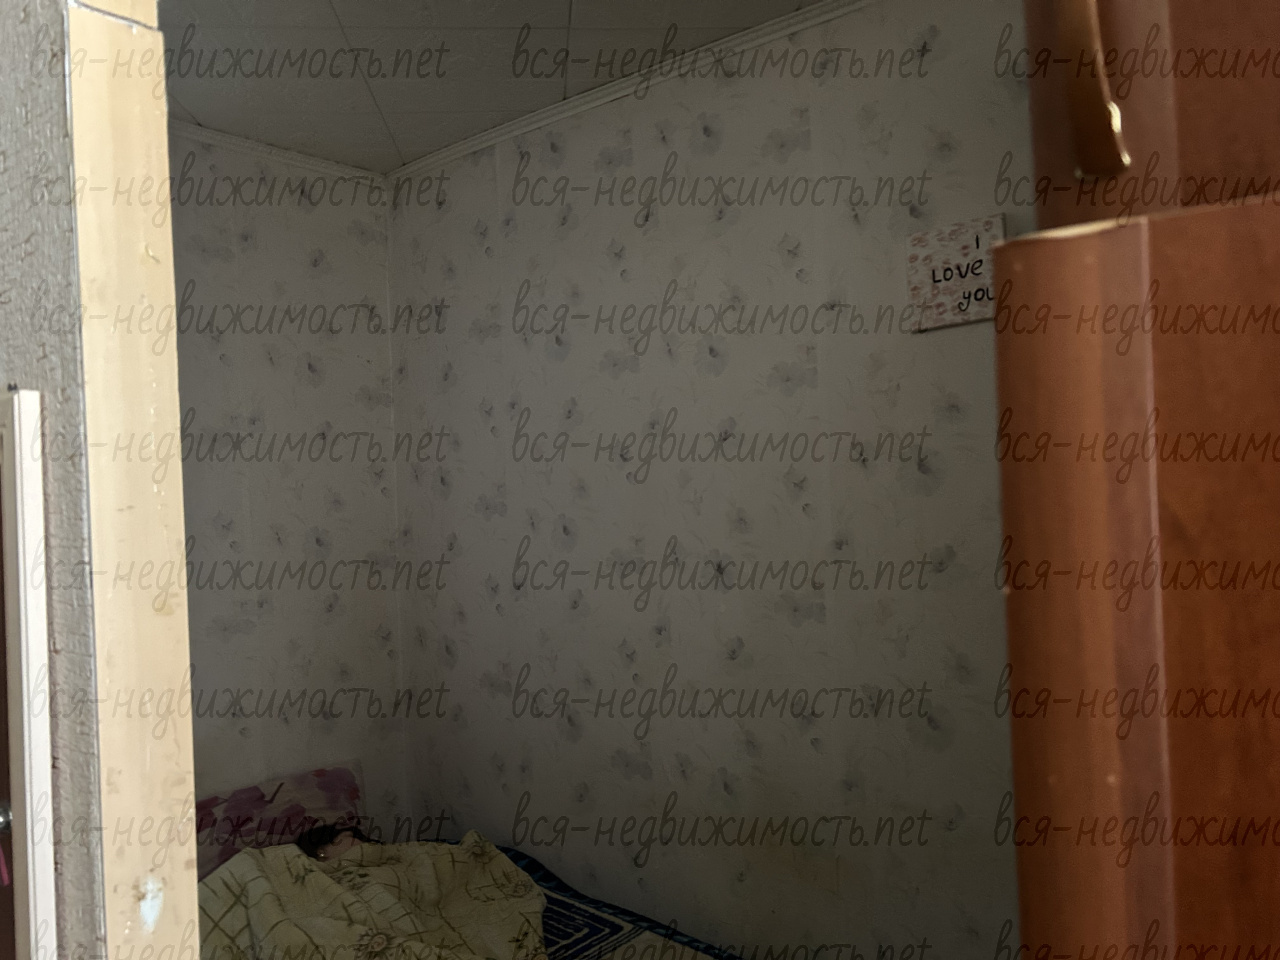 вся-недвижимость.net вся-недвижимость.net вся-недвижим
вся-недвижимость.net вся-недвижимость.net вся-недвижим
I
LOVE
you
вся-недвижимость.net вся-недвижимость.net вся-недвижим
вся-недвижимость.net вся-недвижимость.net вся-недвижим
вся-недвижимость.net вся-недвижимость.net вся-недвижим
вся-недвижимость.net вся-недвижимость.net вся-недвижим
вся-недвижимость.net вся-недвижимость.net вся-недвижим
вся-недвижимость.net вся-недвижимость.net вся-недвижим